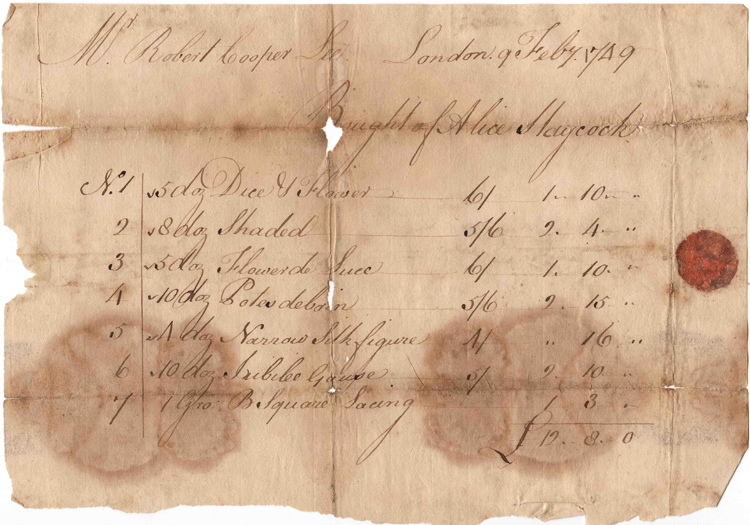 Mr Robert Cooper London 9 Feby. 1749
Bought of Alice Haycock
No. 1 5 doz Dice & Flower 6/ 1 .. 10 .. ..
2 8 doz Shaded 5/6 2 .. 4 .. ..
3 5 doz Flower de Luce 6/ 1 .. 10 .. ..
4 10 doz 5/6 2 .. 15 .. ..
5 4 doz Narrow Silk figure 4/ .. 16 .. ..
6 10 doz Iubilee Gawse 5/ 2 .. 10 .. ..
7 1 Gro B Square Lacing 1 3 ..
£ 12 .. 8 .. 0